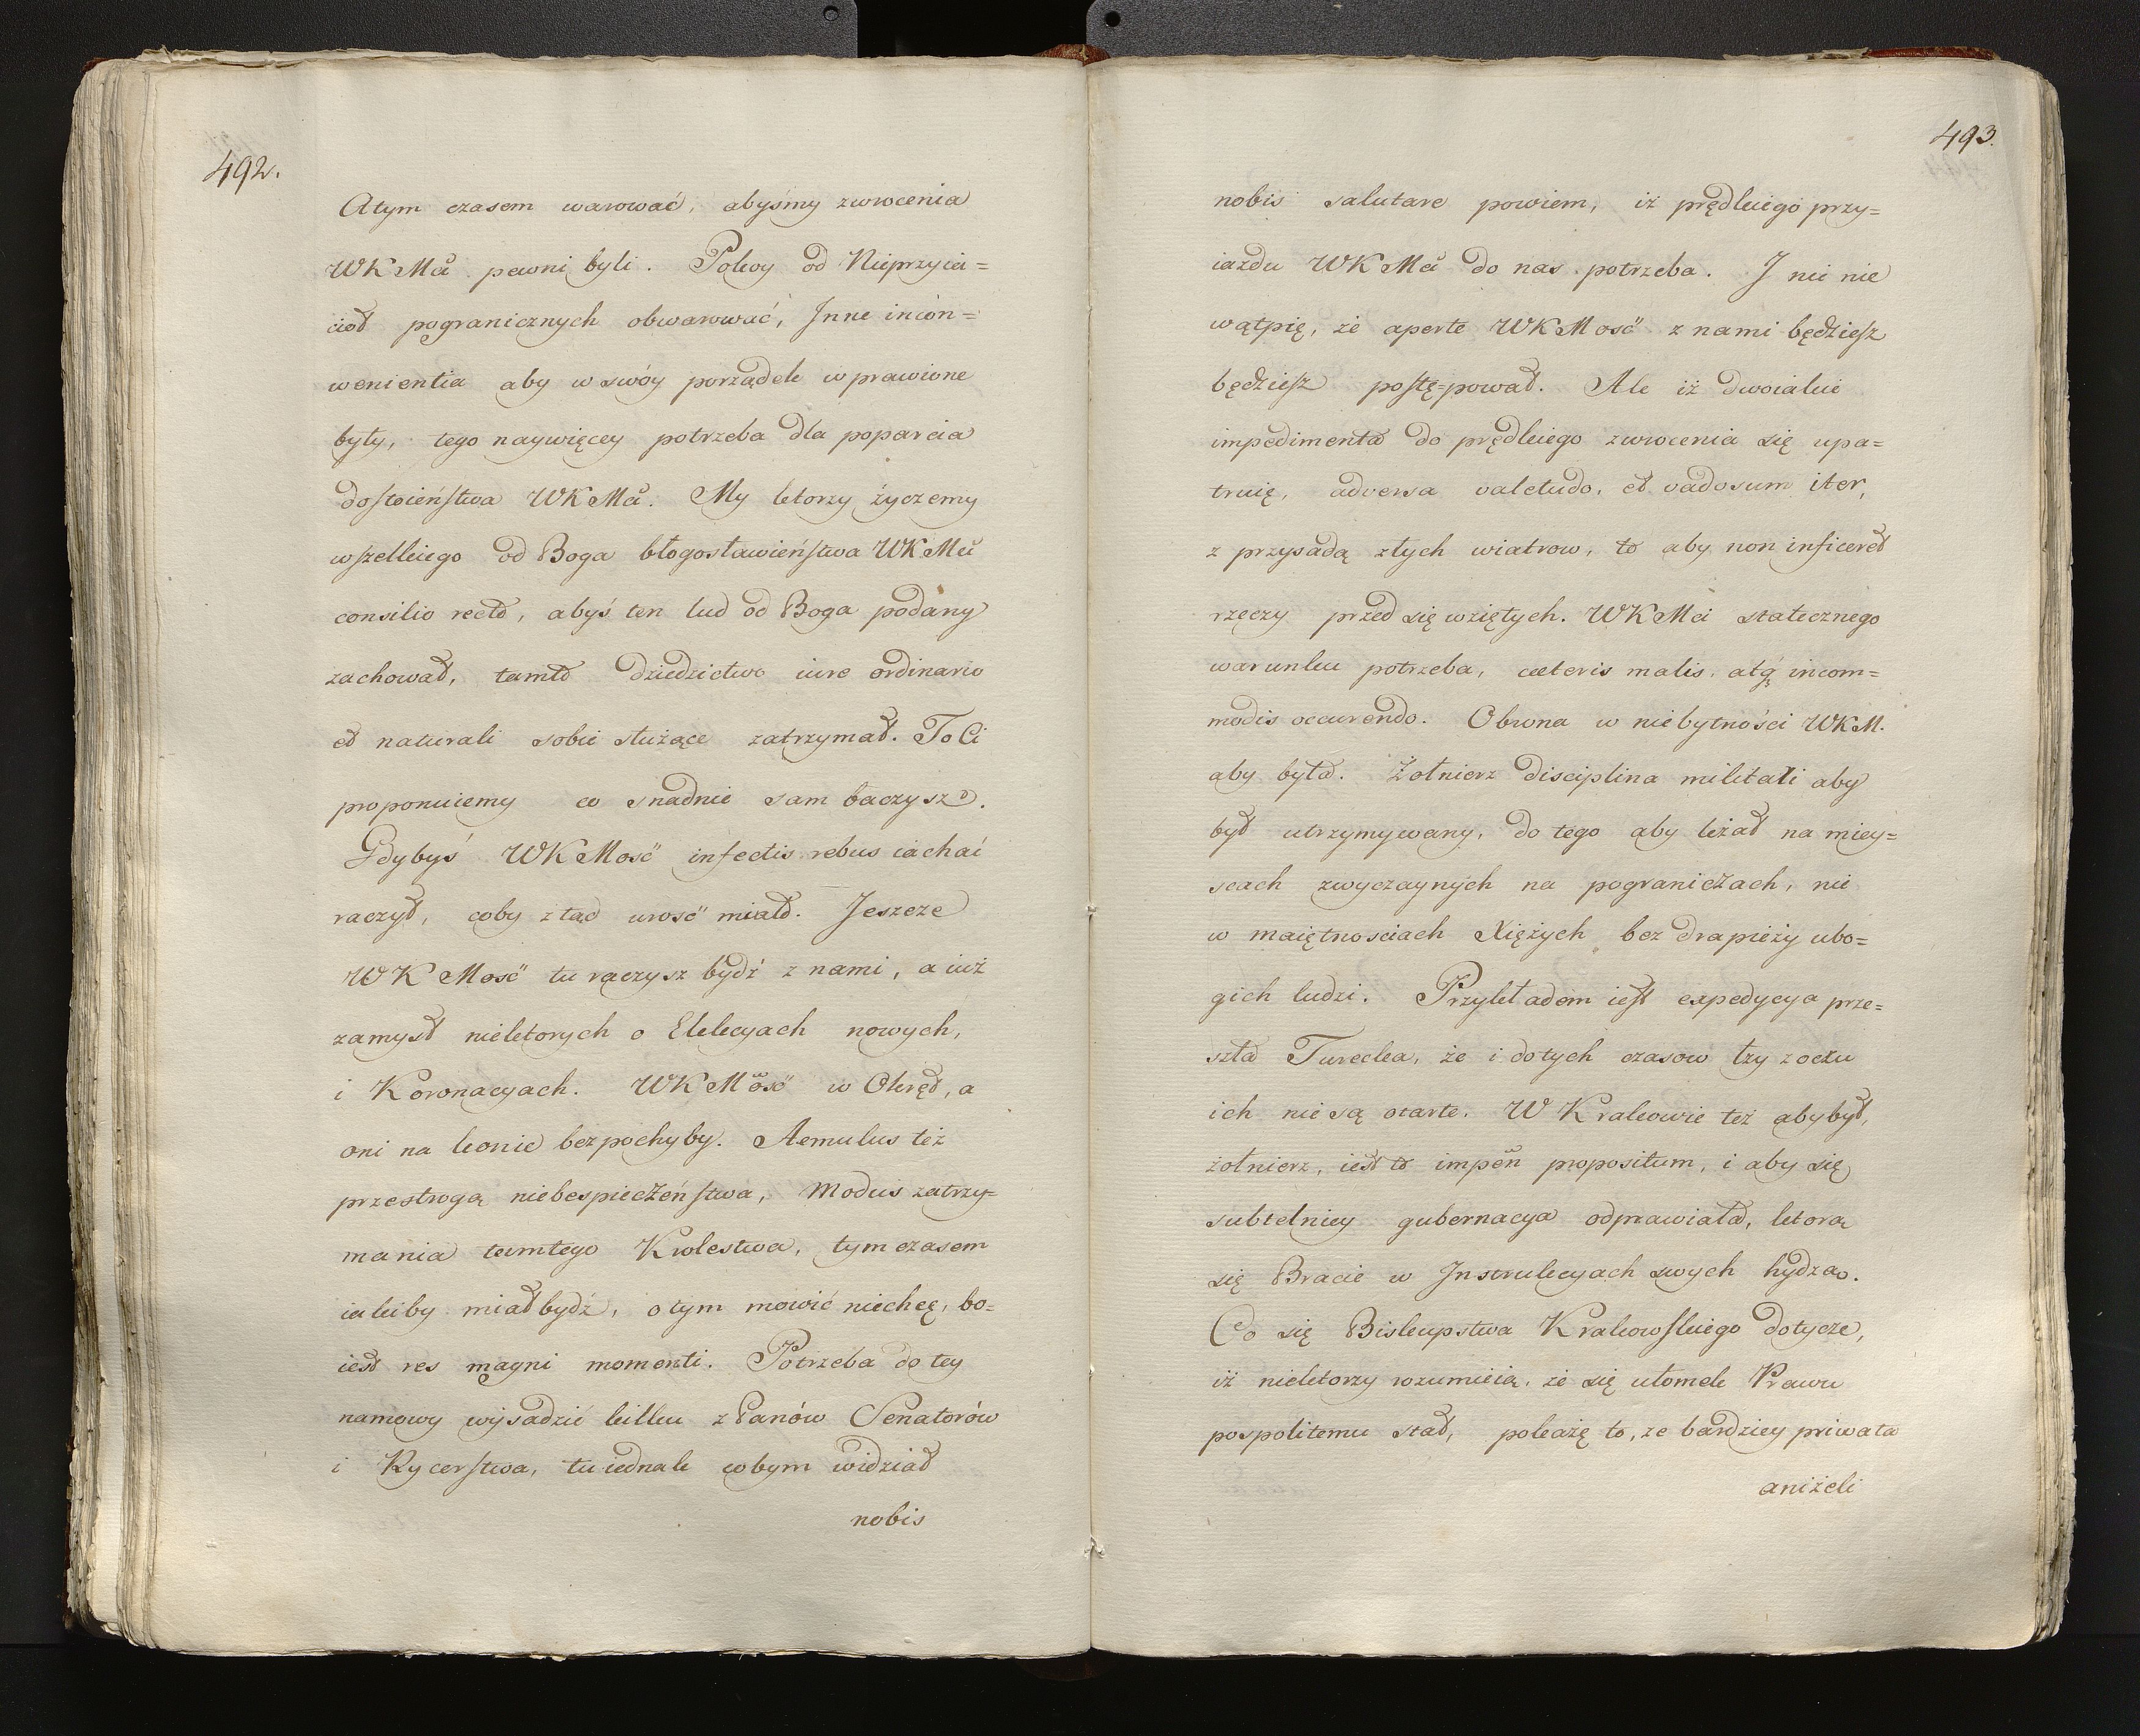 492.
Atym czasem warować, abyśmy zwrocenia
WKMći pewni byli. Pokoy od Nieprzyia=
ciół pogranicznych obwarować, Jnne incon=
wenientia aby w swóy porządek wprawione
były, tego naywięcey potrzeba dla poparcia
dostoieństwa WKMći. My ktorzy życzemy
wszelkiego od Boga błogosławieństwa WKMći
consilio recto, abyś ten lud od Boga podany
zachował, tamto dziedzictwo iure ordinario
et naturali sobie służące zatrzymał. To Ci
proponuiemy co snadnie sam baczysz.
Gdybyś WKMość infectis rebus iachać
raczył, coby ztąd urość miało. Jeszcze
WKMość tu raczysz bydź z nami, a iuż
zamysł niektorych o Elekcyach nowych,
i Koronacyach. WKMość w Okręt, a
oni na konie bezpochyby. Aemulus też
przestrogą niebespieczeństwa, Modus zatrzy=
mania tamtego Krolestwa, tym czasem
iakiby miał bydź, o tym mowić niechcę, bo=
iest res magni momenti. Potrzeba do tey
namowy wysadzić kilku z Panów Senatorów
i Rycerstwa, tu iednak cobym widział
nobis
493.
nobis salutare powiem, iż prędkiego przy=
iazdu WKMći do nas potrzeba. J nic nie
wątpię, że aperte WKMość z nami będziesz
będziesz postę=pował. Ale iż dwoiakie
impedimenta do prędkiego zwrocenia się upa=
truię, adversa valetudo, et vadosum iter,
z przysadą złych wiatrow, to aby non inficeret
rzeczy przed się wziętych. WKMci statecznego
warunku potrzeba, caeteris malis, atq incom=
modis occurendo. Obrona w niebytności WKM.
aby była. Żołnierz disciplina militari aby
był utrzymywany, do tego aby leżał na miey=
scach zwyczaynych na pograniczach, nie
w maiętnosciach Xiężych bez drapieży ubo=
gich ludzi. Przykładem iest expedycya prze=
szła Turecka, że i do tych czasow łzy z oczu
ich nie są otarte. W Krakowie też aby był,
żołnierz, iest to impen propositum, i aby się
subtelniey gubernacya odprawiała, ktorą
się Bracie w Jnstrukcyach swych hydzą.
Co się Biskupstwa Krakowskiego dotycze,
iż niektorzy rozumieią, że się ułomek Prawu
pospolitemu stał, pokażę to, ze bardziey priwata
aniżeli